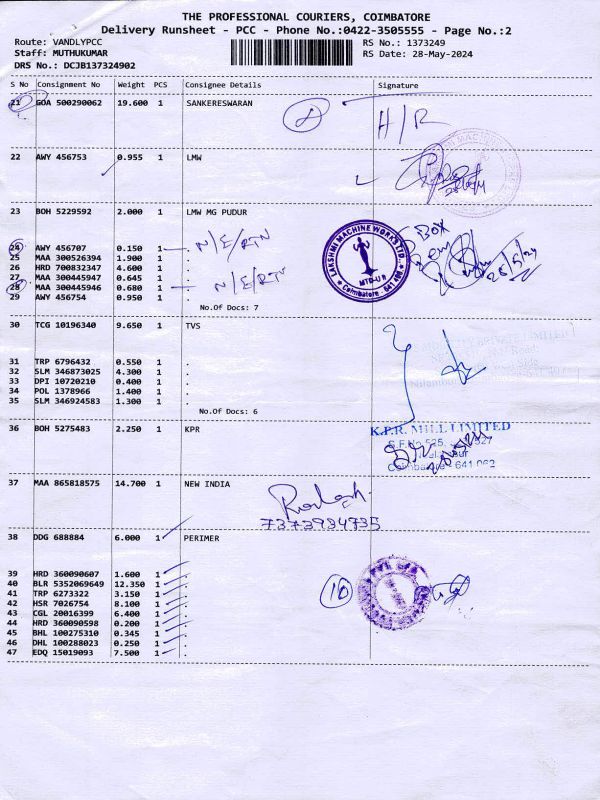 THE PROFESSIONAL COURIERS, COIMBATORE
Delivery Runsheet - PCC - Phone No.:0422-3505555 - Page No.:2
Route: VANDLYPCC RS No.: 1373249
Staff: MUTHUKUMAR RS Date: 28-May-2024
DRS No.: DCJB137324902
S No Consignment No Weight PCS Consignee Details Signature
21 GOA 500290062 19.600 1 SANKERESWARAN
H/R
22 AWY 456753 0.955 1 LMW
23 BOH 5229592 2.000 1 LMW MG PUDUR
24 AWY 456707 0.150 1 . N/E/RTN
25 MAA 300526394 1.900 1 .
26 HRD 700832347 4.600 1 .
27 MAA 300445947 0.645 1 .
28 MAA 300445946 0.680 1 . N/E/RTN
29 AWY 456754 0.950 1 .
LAKSHMI MACHINE WORKS LTD.
MTD-U II
Coimbatore - 641
5 BOX
28/5/24
No.Of Docs: 7
30 TCG 10196340 9.650 1 TVS
31 TRP 6796432 0.550 1 .
32 SLM 346873025 4.300 1 .
33 DPI 10720210 0.400 1 .
34 POL 1378966 1.400 1 .
35 SLM 346924583 1.300 1 .
No.Of Docs: 6
36 BOH 5275483 2.250 1 KPR
K.P.R. MILL LIMITED
S.F.No.525, 527
Coimbatore - 641 062
37 MAA 865818575 14.700 1 NEW INDIA
7373994735
38 DDG 688884 6.000 1 PERIMER
39 HRD 360090607 1.600 1 .
40 BLR 5352069649 12.350 1 .
41 TRP 6273322 3.150 1 .
42 HSR 7026754 8.100 1 .
43 CGL 20016399 6.400 1 .
44 HRD 360090598 0.200 1 .
45 BHL 100275310 0.345 1 .
46 DHL 100288023 0.250 1 .
47 EDQ 15019093 7.500 1 .
10